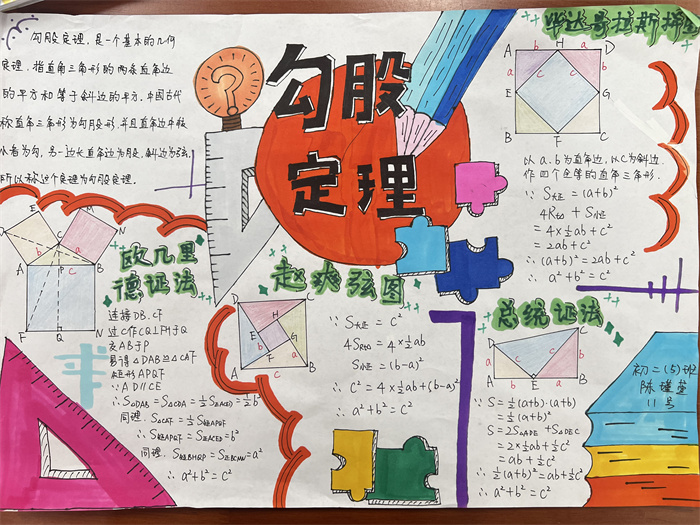 勾股定理，是一个基本的几何
定理，指直角三角形的两条直角边
的平方和等于斜边的平方，中国古代
称直角三角形为勾股形，并且直角边中较
小者为勾，另一边长直角边为股，斜边为弦，
所以称这个定理为勾股定理。
?
勾股
定理
毕达哥拉斯拼
A b H a D
a c c b
E G
b c c a
B F C
以a.b为直角边，以C为斜边
作四个全等的直角三角形.
∵ S大正 = (a+b)²
4RtΔ + S小正
= 4×½ab + c²
= 2ab + c²
∴ (a+b)² = 2ab + c²
∴ a² + b² = c²
欧几里
德证法
连接DB.CF
过C作CQ⊥FH于Q
交AB于P
易得△DAB≌△CAF
矩形APQF
∵ AD∥CE
∴ S△DAB = S△CDA = ½S正ACED = ½b²
同理：S△CAF = ½S矩APQF
∴ S矩APQF = S正ACED = b²
同理：S矩BHQP = S正BCMN = a²
∴ a² + b² = c²
赵爽弦图
∵ S大正 = c²
4SRtΔ = 4×½ab
S小正 = (b-a)²
∴ c² = 4×½ab + (b-a)²
∴ a² + b² = c²
总统证法
∵ S = ½(a+b)·(a+b)
= ½(a+b)²
S = 2S△ADE + S△DEC
= 2×½ab + ½c²
= ab + ½c²
∴ ½(a+b)² = ab + ½c²
∴ a² + b² = c²
初二(5)班
11号